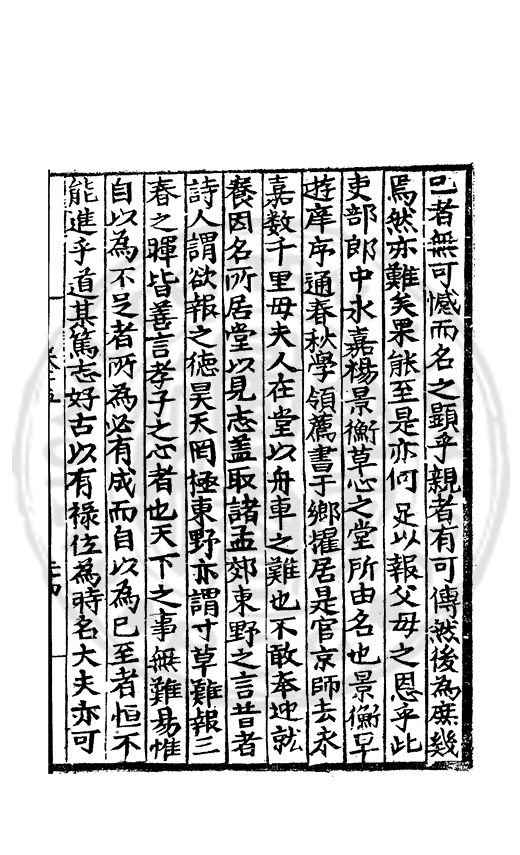 已者無可憾而名之顯乎親者有可傳然後為庶幾
焉然亦難矣果能至是亦何足以報父母之恩乎此
吏部郎中永嘉楊景衡草心之堂所由名也景衡早
遊庠序通春秋學領薦書于鄉擢居是官京師去永
嘉數千里母夫人在堂以舟車之難也不敢奉迎就
養因名所居堂以見志盖取諸孟郊東野之言昔者
詩人謂欲報之德昊天罔極東野亦謂寸草難報三
春之暉皆善言孝子之心者也天下之事無難易惟
自以為不足者所為必有成而自以為已至者恒不
能進乎道其篤志好古以有祿位為時名大夫亦可